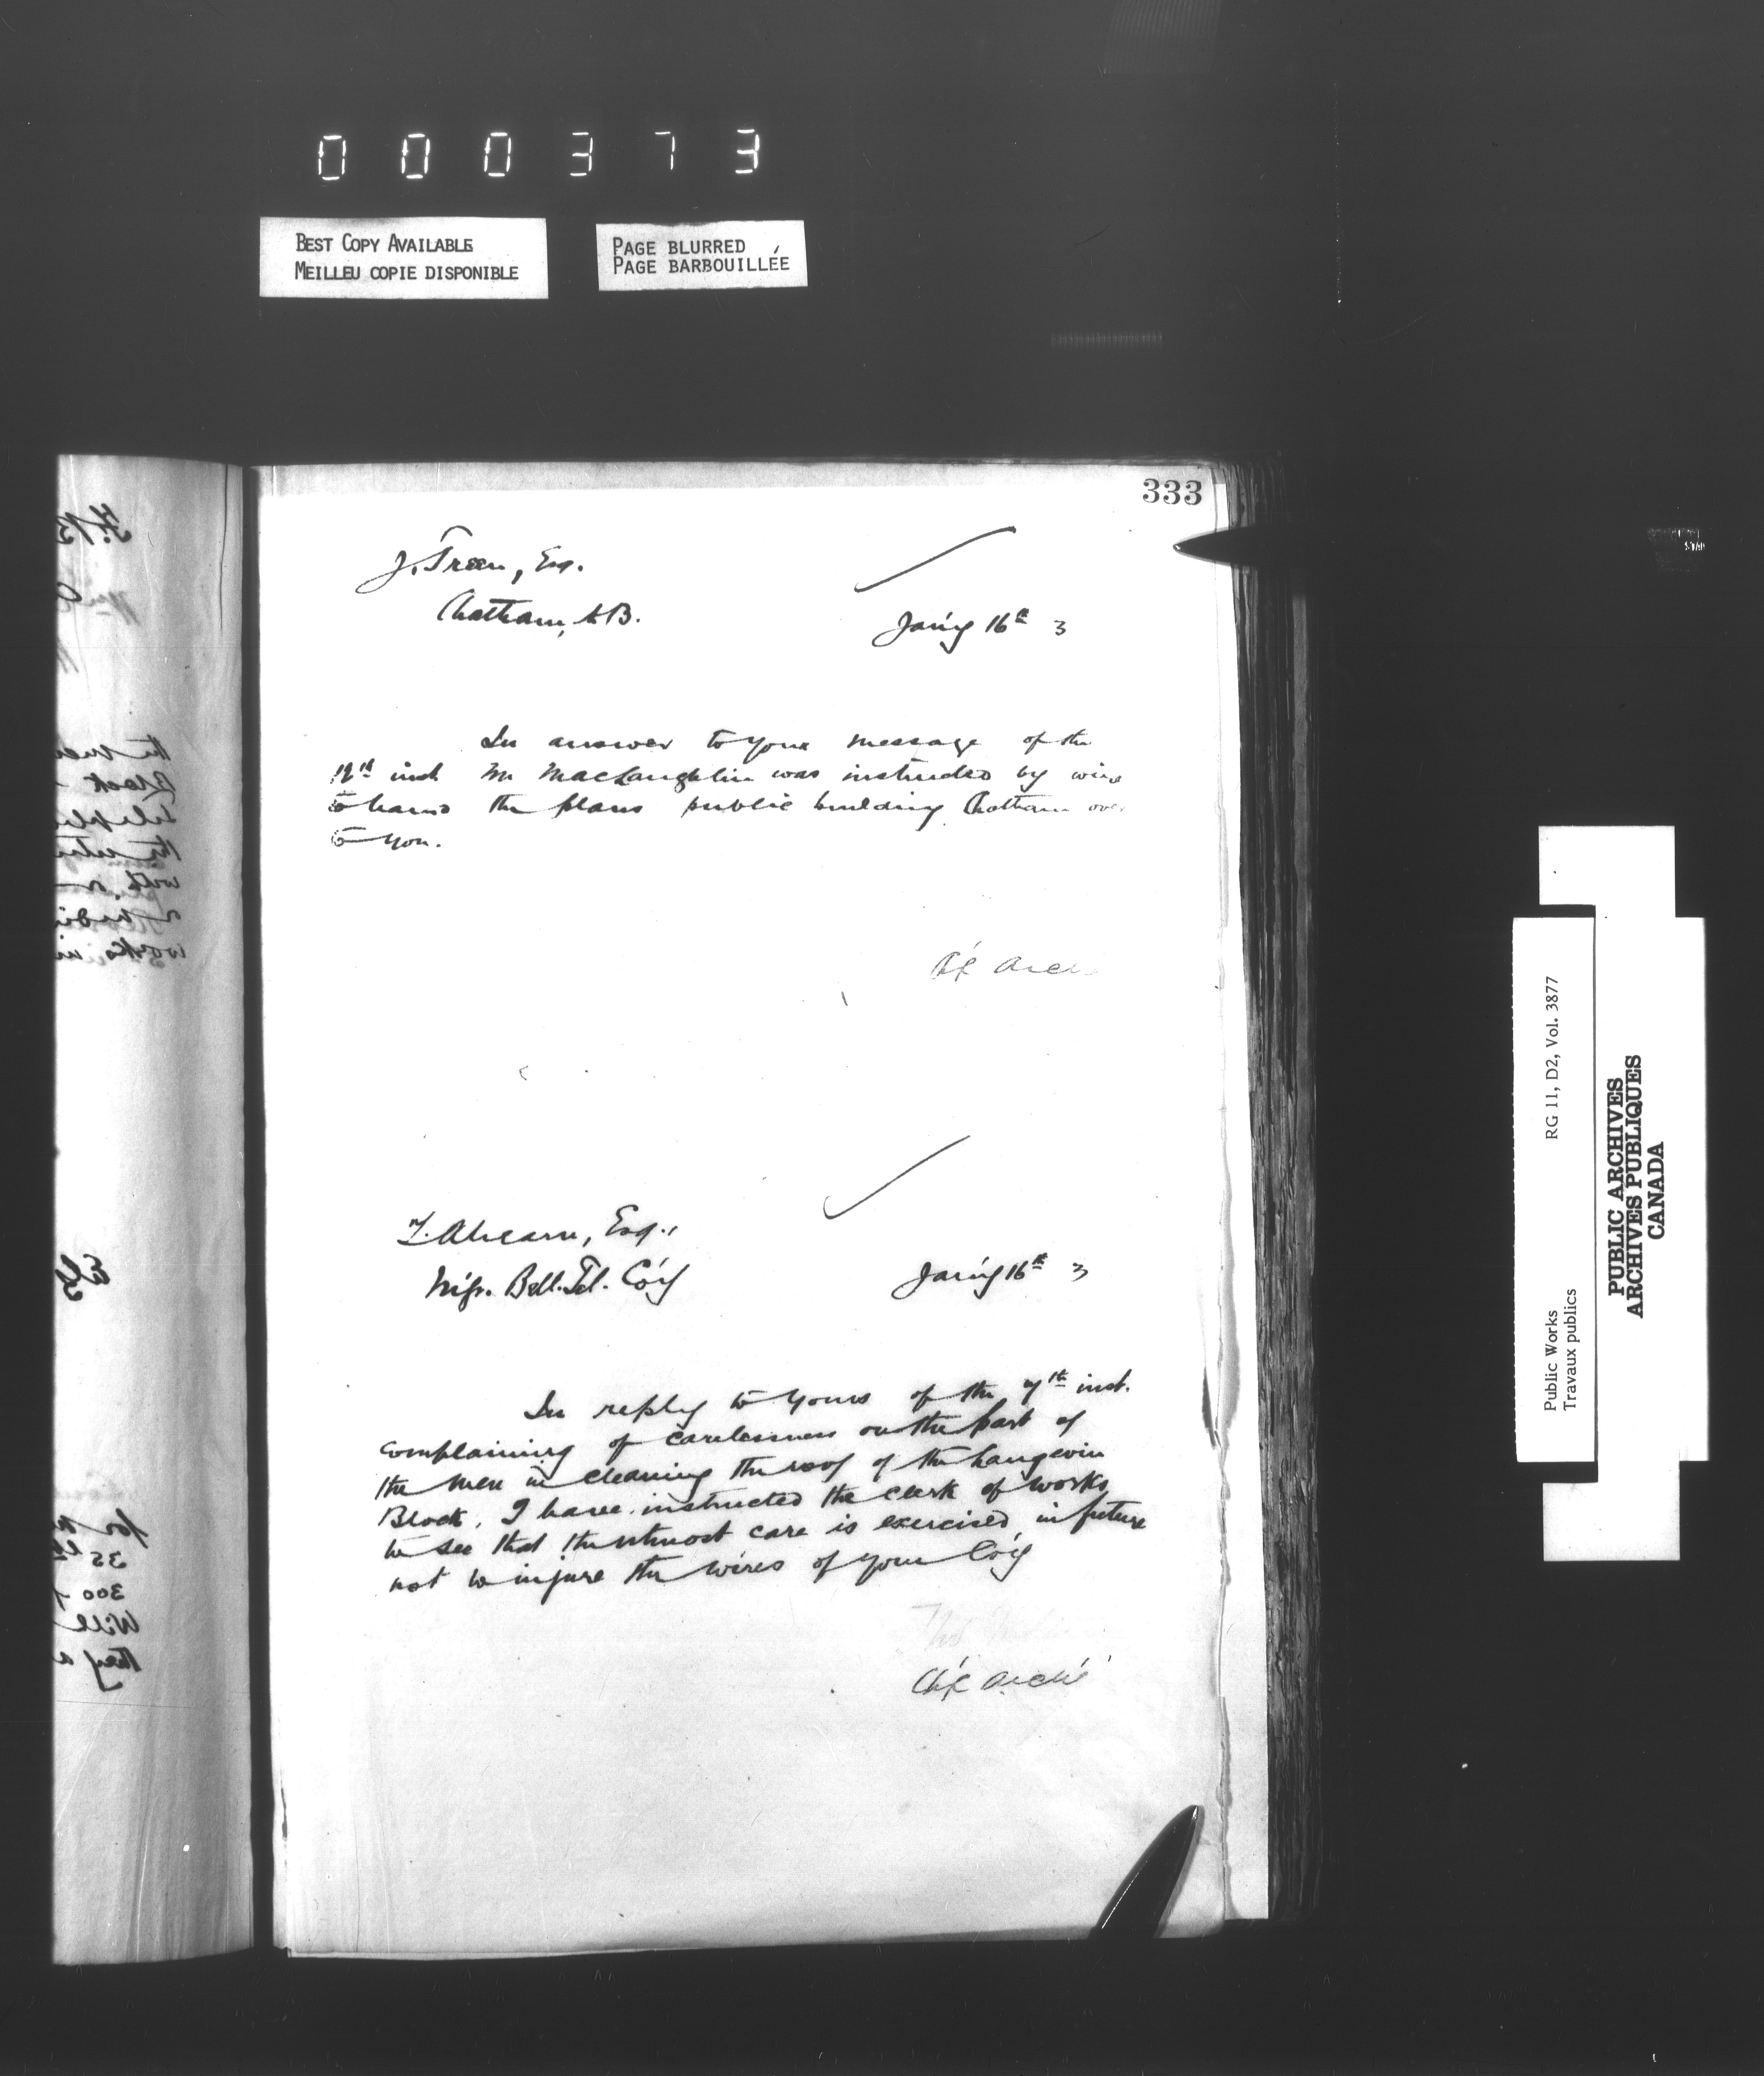 000373
BEST COPY AVAILABLE
MEILLEU COPIE DISPONIBLE
PAGE BLURRED
PAGE BARBOUILLÉE
333
J. Treen, Esq.
Chatham, N.B.
Jan'y 16th 3
In answer to your message of the
12th inst. Mr MacLaughlin was instructed by wire
to hand the plans public building Chatham over
to you.
Ch'f Arch
T. Ahearn, Esq.,
M'g'r. Bell. Tel. Co'y
Jan'y 16th 3
In reply to yours of the 7th inst.
complaining of carelessness on the part of
the men in cleaning the roof of the Langevin
Block, I have instructed the clerk of works
to see that the utmost care is exercised in future
not to injure the wires of your Co'y
Ch'f Arch't
Public Works
Travaux publics
RG 11, D2, Vol. 3877
PUBLIC ARCHIVES
ARCHIVES PUBLIQUES
CANADA